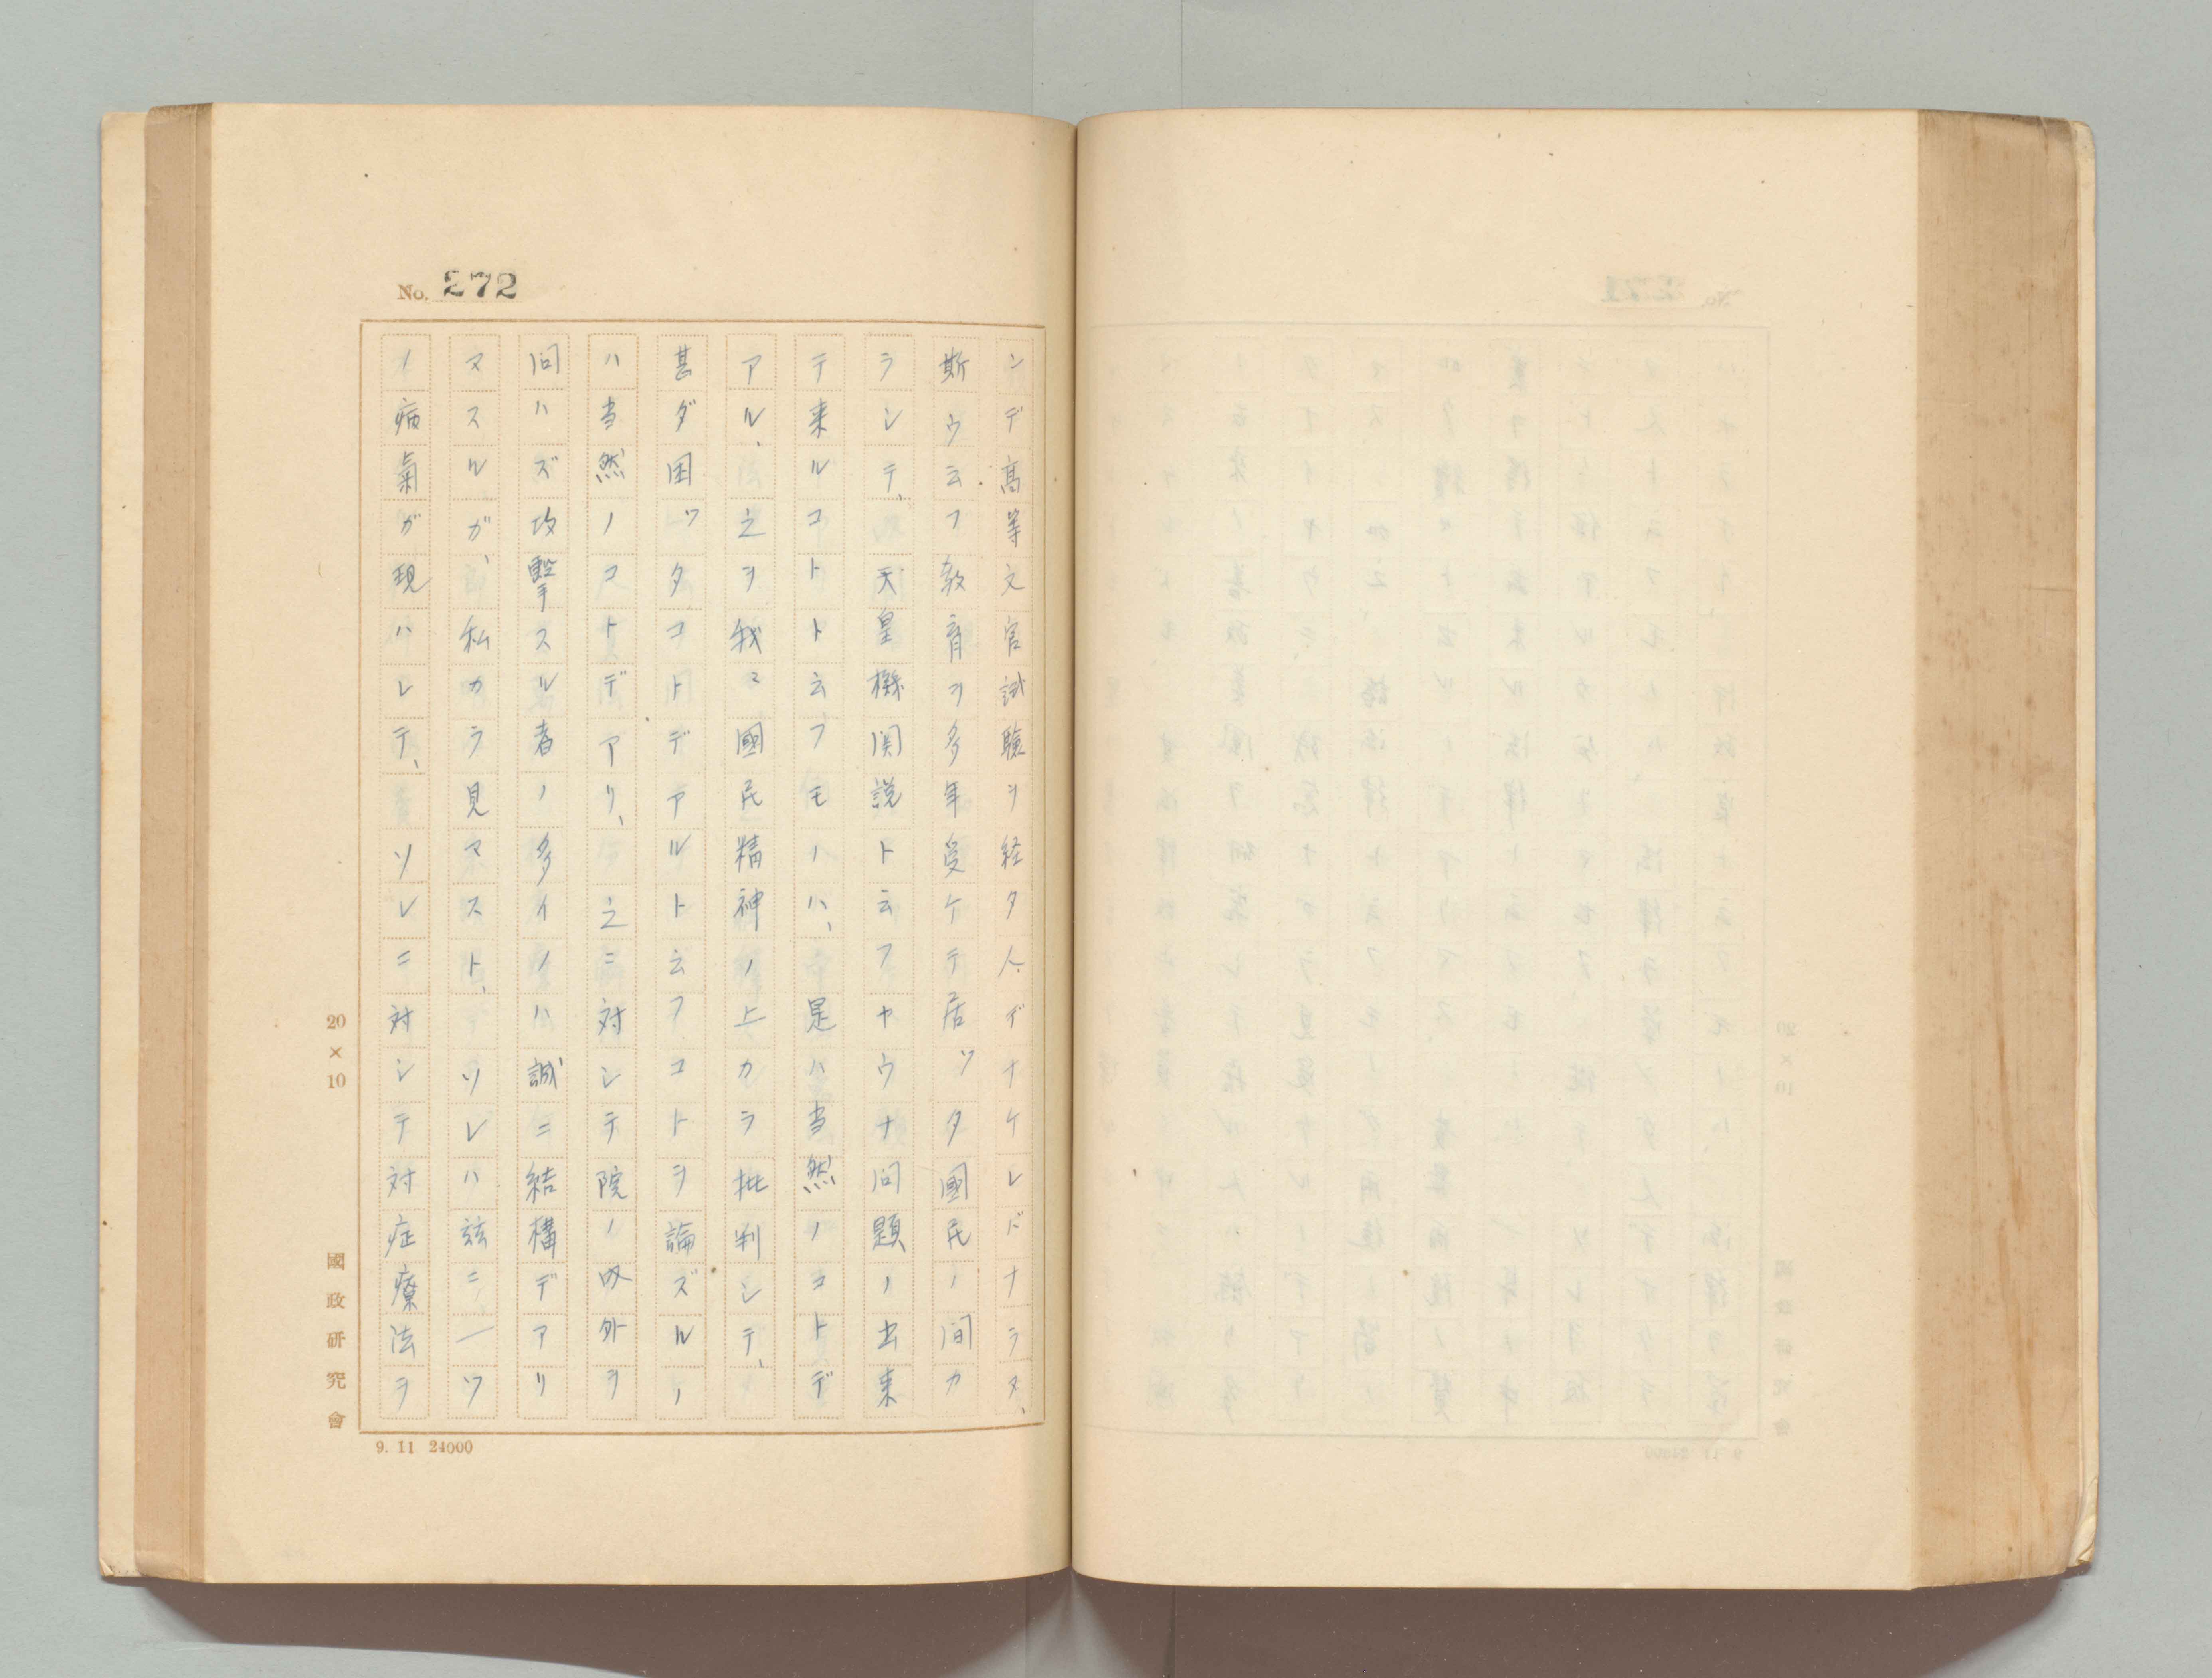 No. 272
ンデ高等文官試験ヲ経タ人デナケレバナラヌ、
斯ウ云フ教育ヲ多年受ケテ居ツタ國民ノ間カ
ラシテ、天皇機関説ト云フヤウナ問題ノ出来
テ来ルコトト云フモノハ、是ハ当然ノコトデ
アル、之ヲ我々國民精神ノ上カラ批判シテ、
甚ダ困ツタコトデアルト云フコトヲ論ズルノ
ハ当然ノコトデアリ、之ニ対シテ院ノ内外ヲ
問ハズ攻撃スル者ノ多イノハ誠ニ結構デアリ
マスルガ、私カラ見マスト、ソレハ茲ニ一ツ
ノ病氣ガ現ハレテ、ソレニ対シテ対症療法ヲ
20×10
國政研究會
9. 11 24000